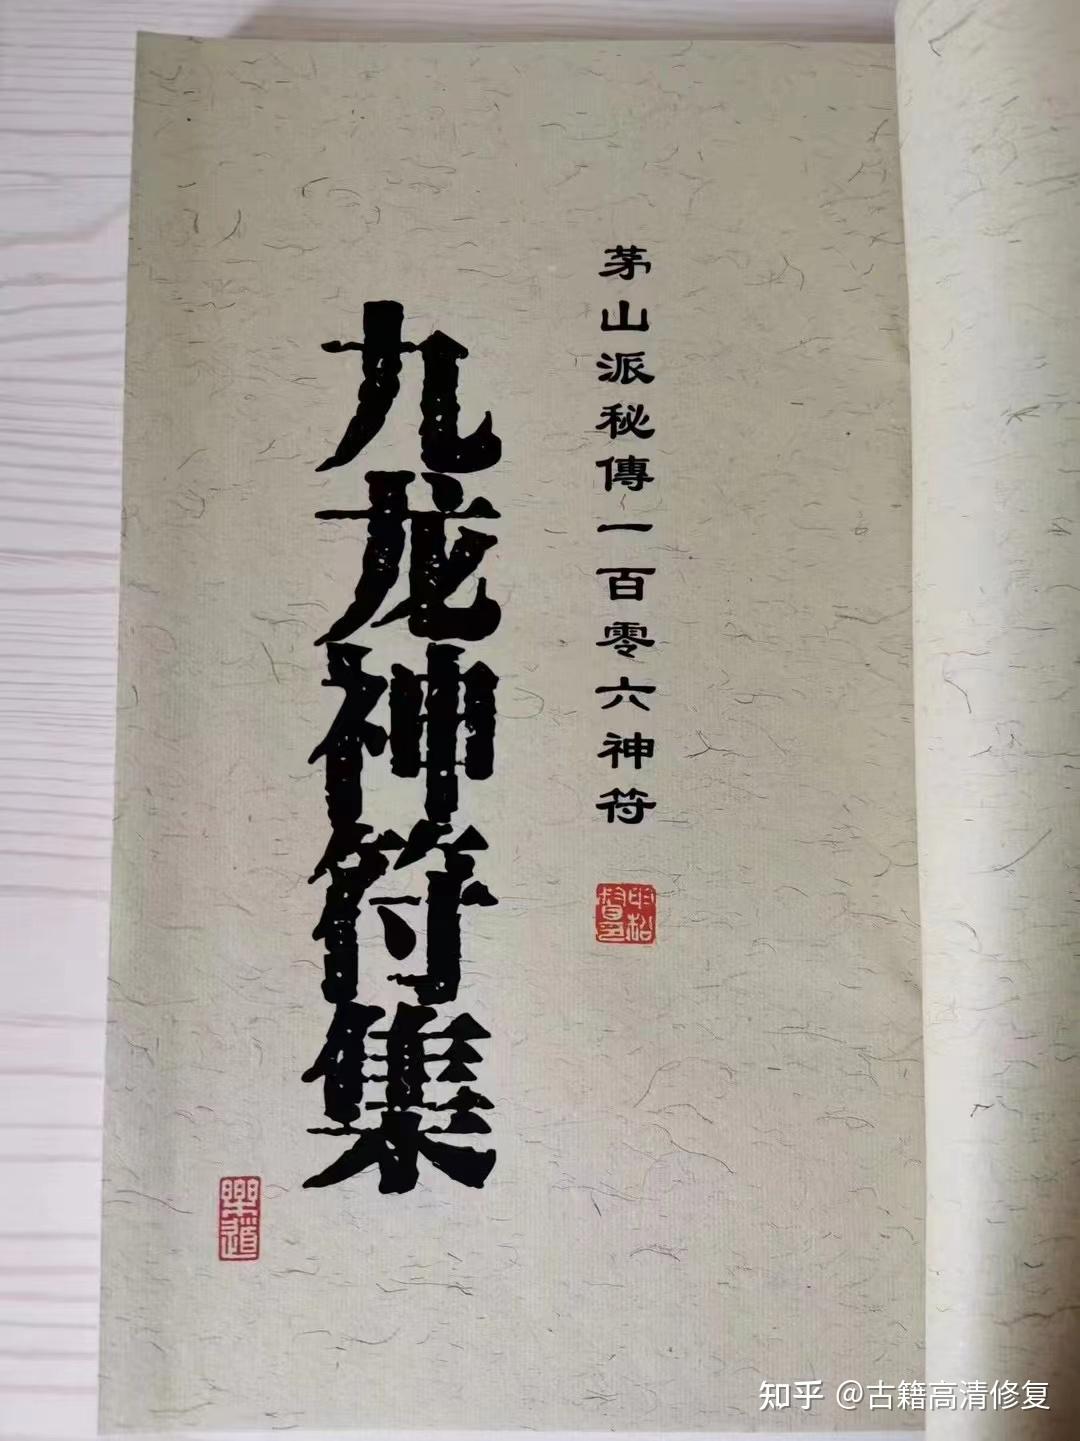 茅山派秘傳一百零六神符
九龙神符集
樂道
知乎 @古籍高清修复